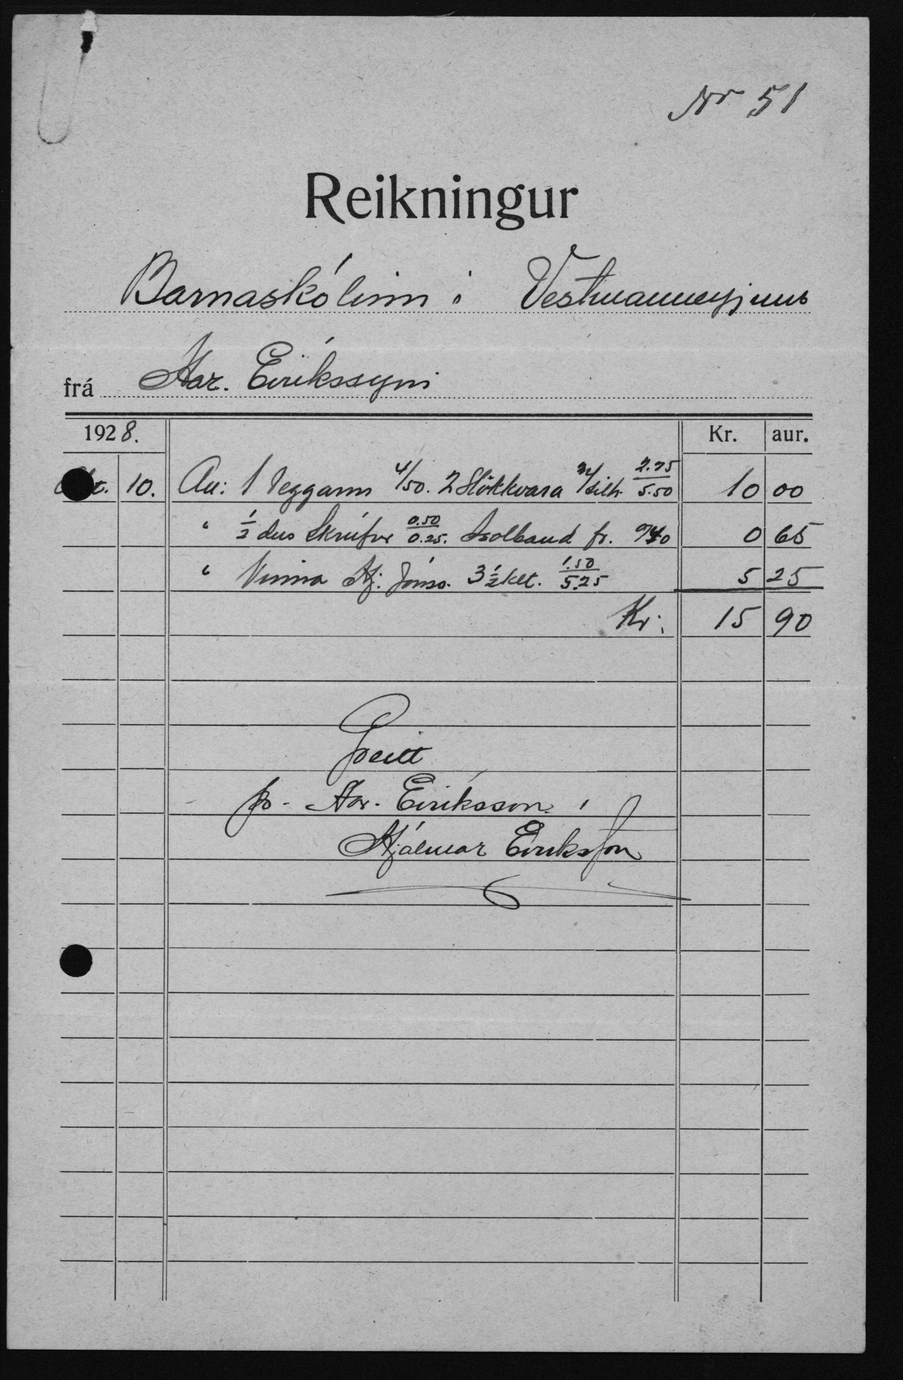 Nr 51
Reikningur
Barnaskólinn í Vestmannaeyjum
frá Har. Eiríkssyni
1928. Kr. aur.
10. Au: 1 Veggarm 4/50. 2 Slökkvara 2.75 5.50 10 00
" ½ dus Skrúfur 0.50 0.25. Isolband fr. 0 65
" Vinna Hj. Jóns. 3 ½ klt. 1.50 5.25 5 25
Kr: 15 90
Greitt
pr. Har. Eiríksson
Hjálmar Eiríksson